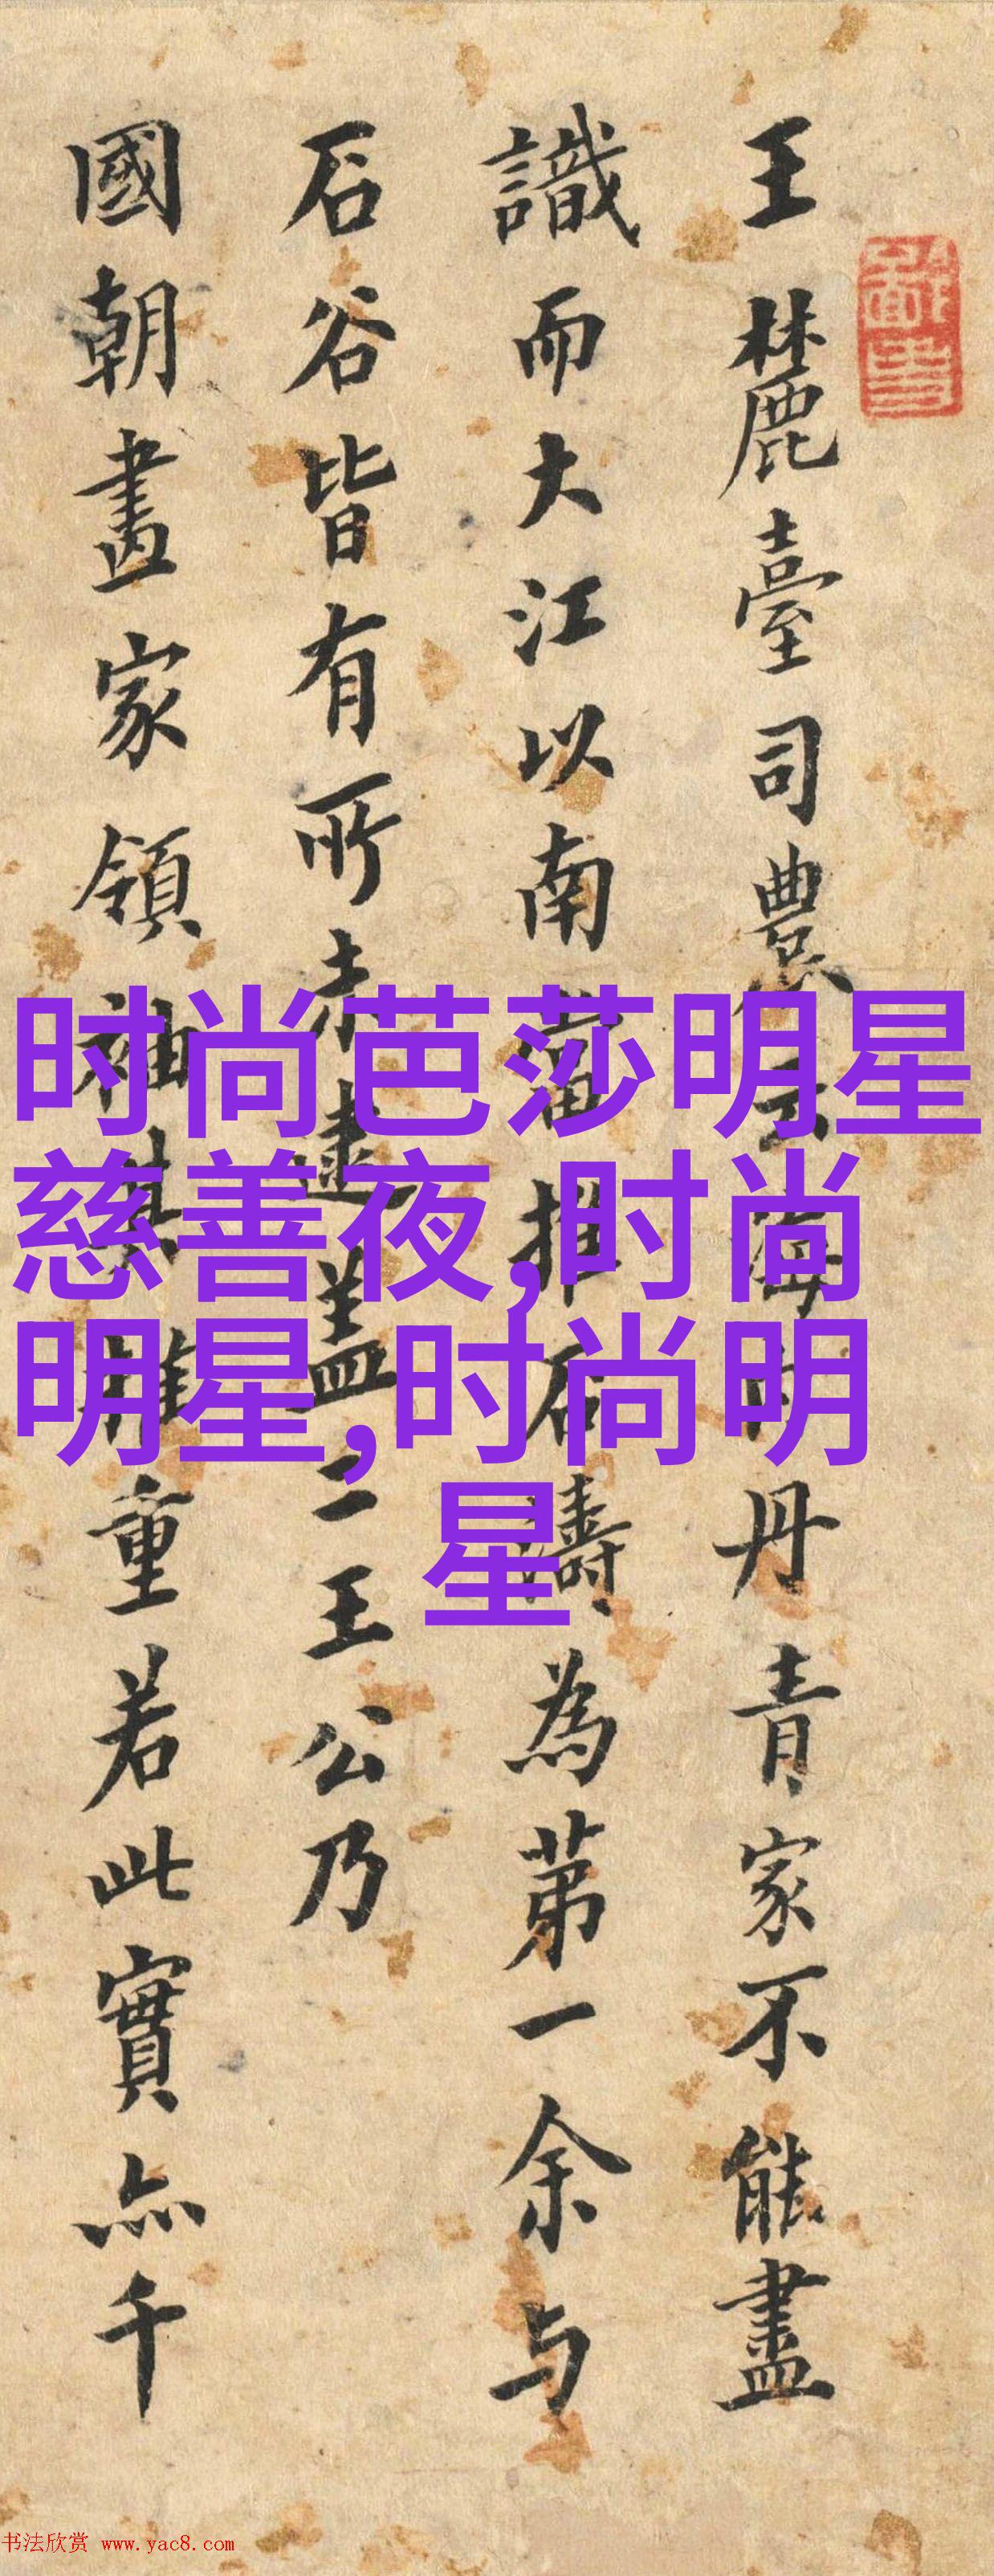 王麓臺司農云海內丹青家不能盡
識而大江以南當推石濤為第一余与
石谷皆有所未逮盖二王公乃
國朝畫家領袖其推重若此實亦千
时尚芭莎明星
慈善夜,时尚
明星,时尚明
星
书法欣赏 www.yac8.com